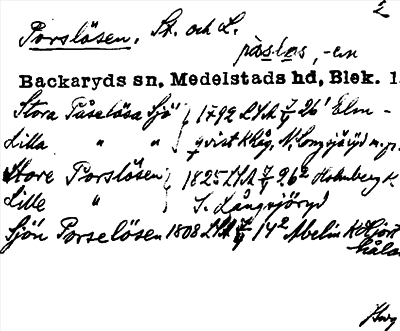 2
Porslösen, St. och L.
påsløs, -en
Backaryds sn, Medelstads hd, Blek. 1.
Stora Påselösa Sjö } 1792 LSA 7/4 26' Elm-
Lilla " " } qvist KHåg, N. Longsjöryd m.fl.
Store Porslösen } 1825 LSA 7/4 96² Holmberg K
Lille " } S. Långsjöryd
Sjön Porselösen 1808 LSA 7/4 14² Abelin K Hjort
håla